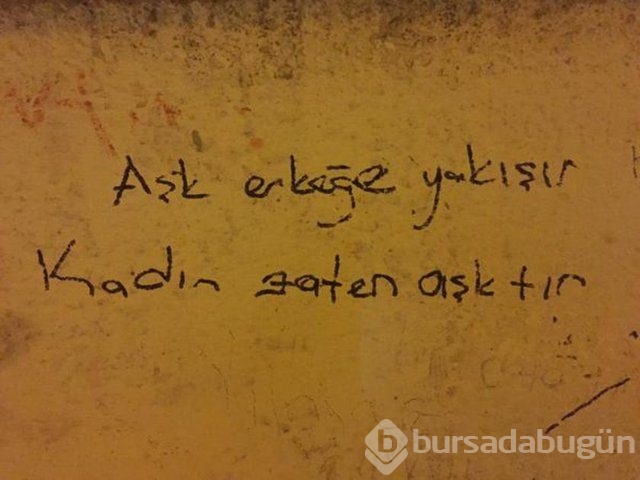 Aşk erkeğe yakışır
Kadın zaten aşktır
bursadabugün